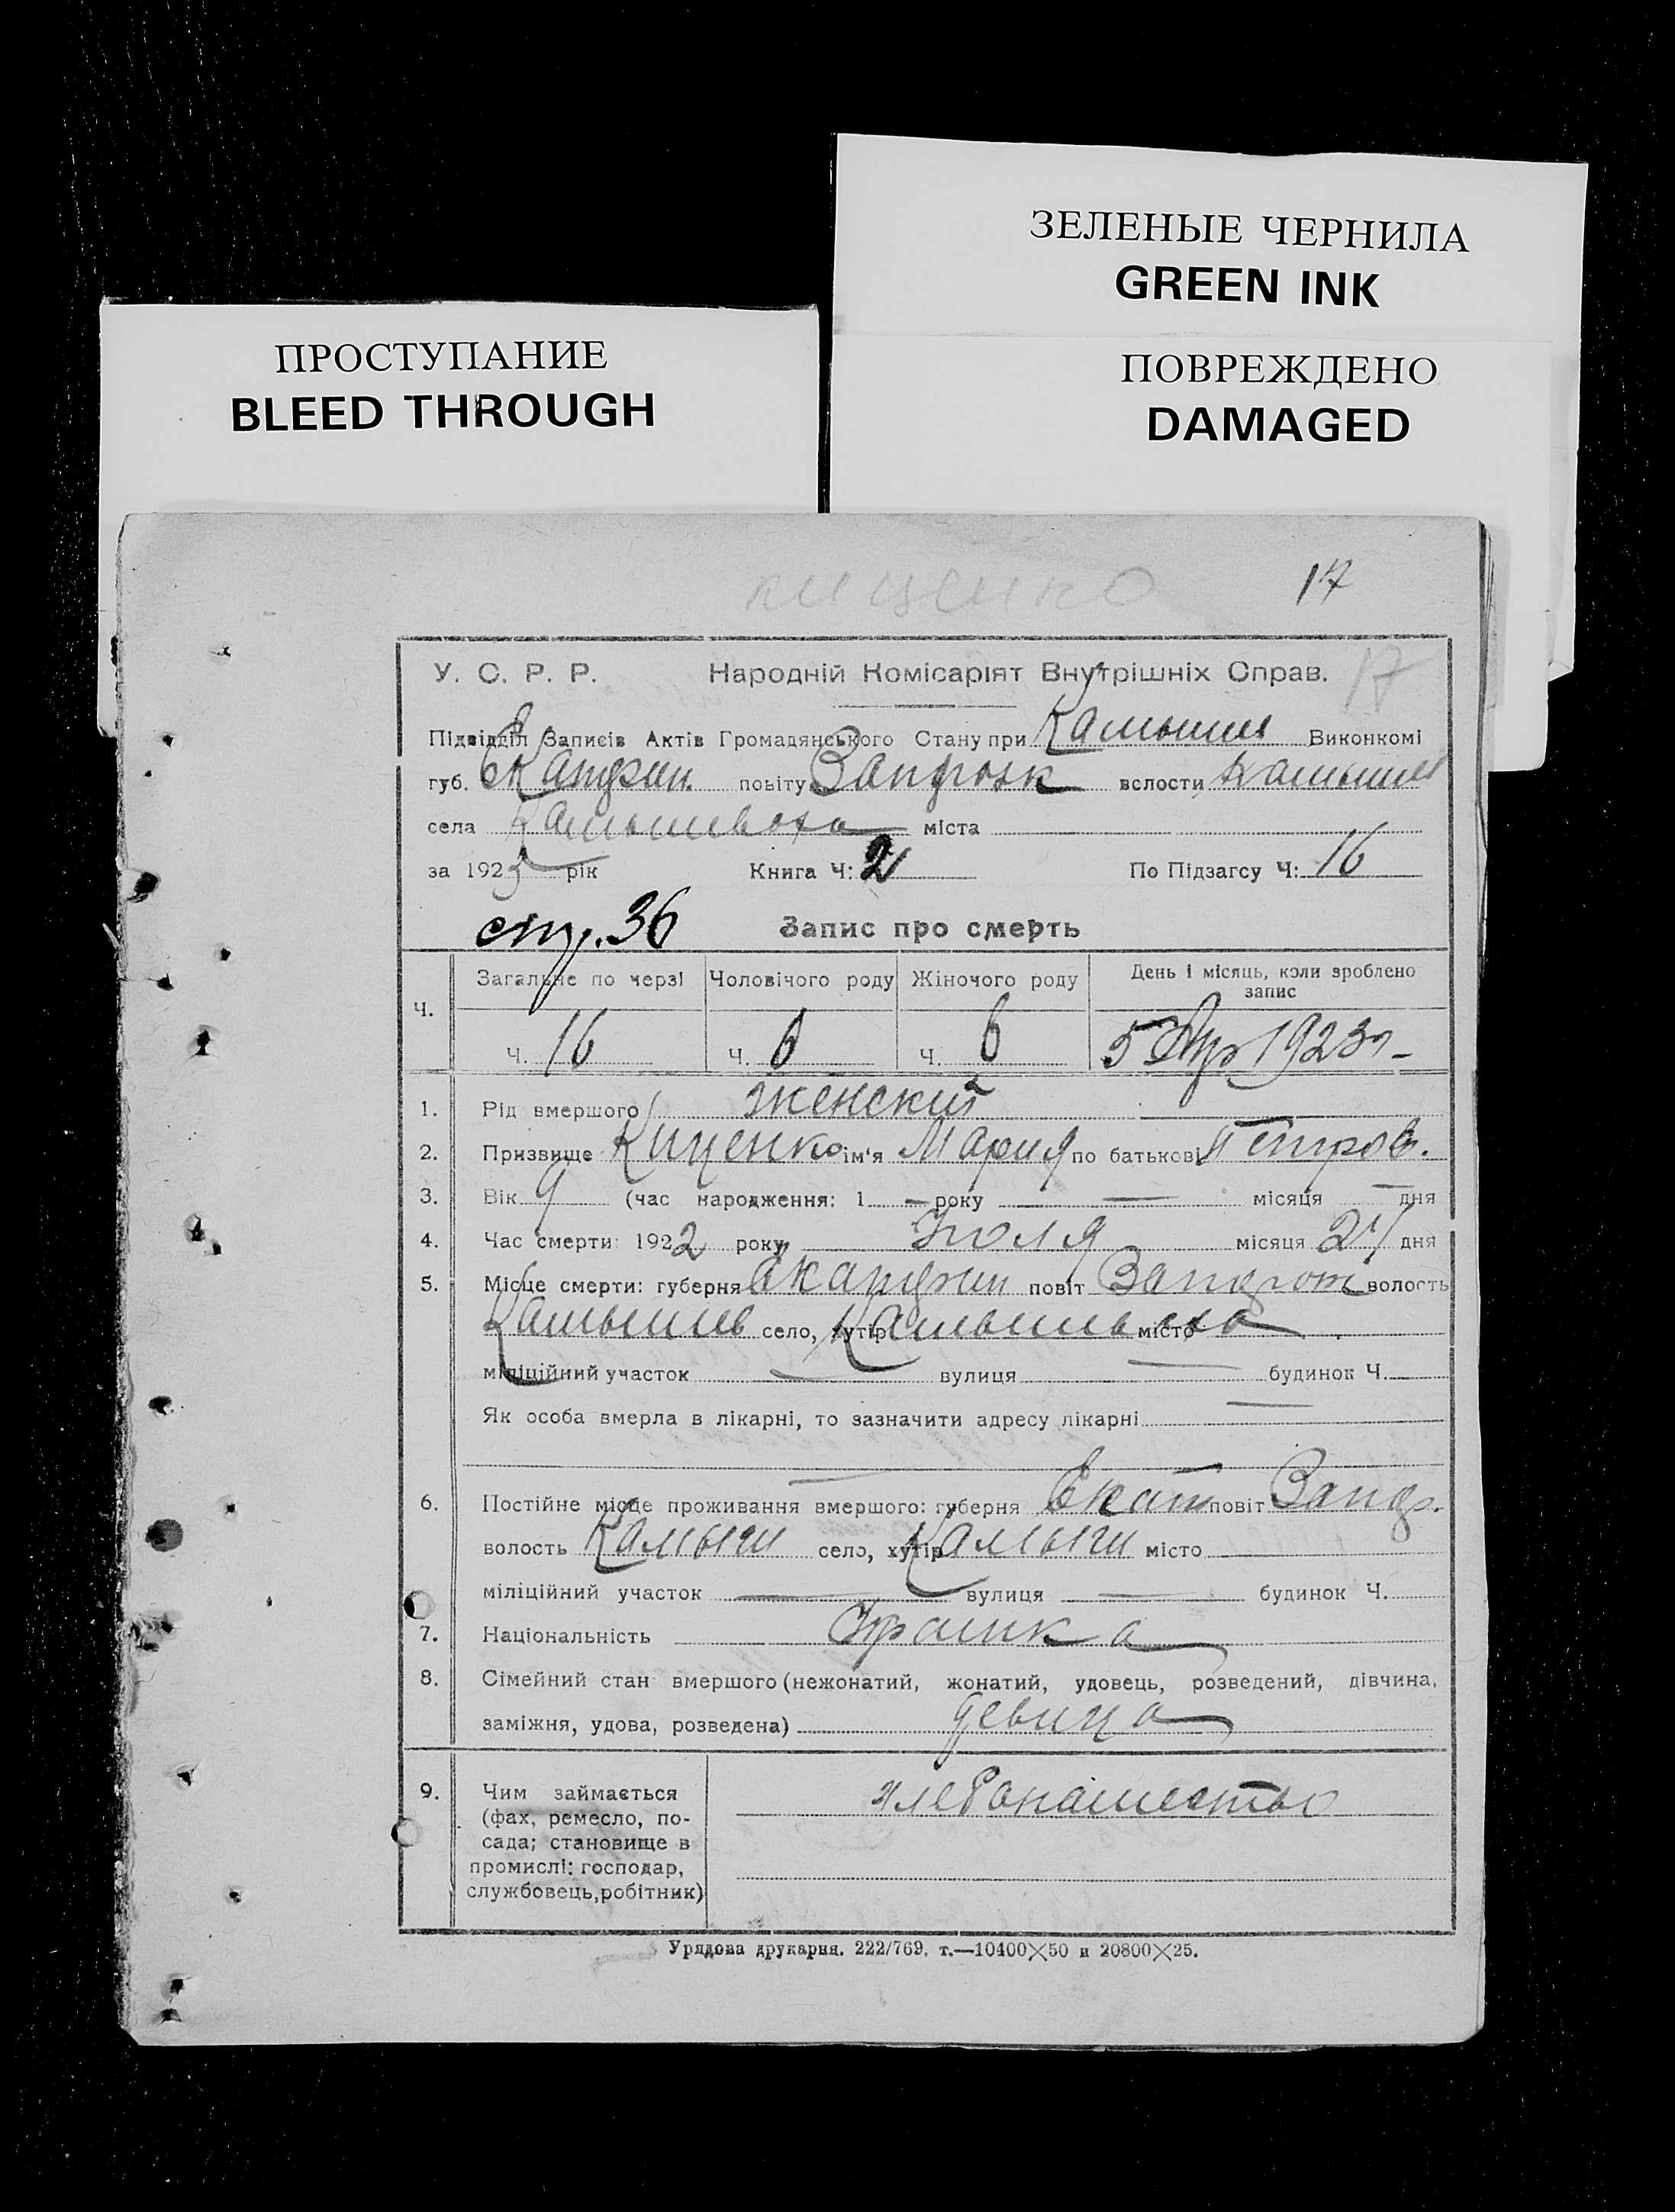 ЗЕЛЕНЫЕ ЧЕРНИЛА
GREEN INK
ПРОСТУПАНИЕ
BLEED THROUGH
ПОВРЕЖДЕНО
DAMAGED
Киценко 17
У. С. Р. Р. Народній Комісаріят Внутрішніх Справ. 17
Підвідділ Записів Актів Громадянського Стану при Камышев Виконкомі
губ. Екатерин. повіту Запорож волости Камышев
села Камышеваха міста
за 1923 рік Книга Ч: 2 По Підзагсу Ч: 16
стр. 36 Запис про смерть
Ч. Загальне по черзі Чоловічого роду Жіночого роду День і місяць, коли зроблено запис
Ч. 16 Ч. 6 Ч. 6 5 Апр 1923 г.
1. Рід вмершого женский
2. Призвище Киценко ім'я Мария по батькові Петров.
3. Вік 9 (час народження: 1 — року — місяця — дня
4. Час смерти: 1922 року Июля місяця 24 дня
5. Місце смерти: губерня Екатерин повіт Запорож волость
Камышев село, хутір Камышеваха місто
міліційний участок — вулиця — будинок Ч.
Як особа вмерла в лікарні, то зазначити адресу лікарні —
6. Постійне місце проживання вмершого: губерня Екат повіт Запор.
волость Камыш село, хутір Камыш місто
міліційний участок — вулиця — будинок Ч.
7. Національність Украинка
8. Сімейний стан вмершого (нежонатий, жонатий, удовець, розведений, дівчина,
заміжня, удова, розведена) девица
9. Чим займається хлебопашество
(фах, ремесло, по-
сада; становище в
промислі: господар,
службовець, робітник)
Урядова друкарня. 222/769. т.—10400×50 и 20800×25.